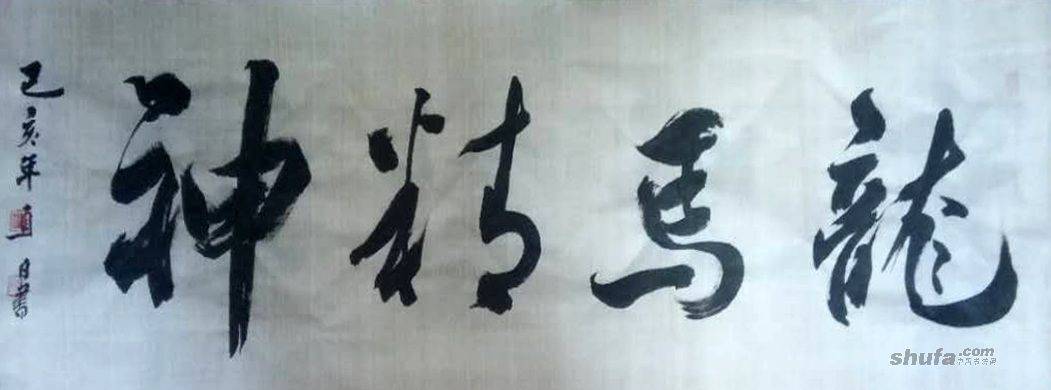 龍馬精神
己亥年直日書
shufa.com